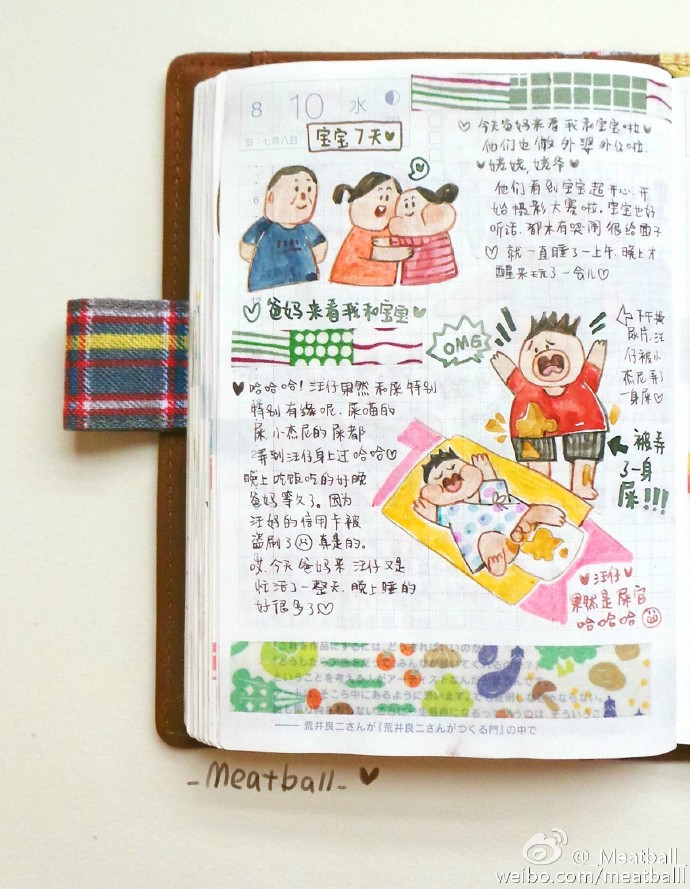 8 10 水
旧:七月八日
宝宝7天♥
♡今天爸妈来看我和宝宝啦♥
他们也做外婆外公啦.
♥姥姥,姥爷♥
他们看到宝宝超开心,开
始摄影大赛啦,宝宝也好
听话,都木有哭闹很给面子
♡就一直睡了一上午,晚上才
醒来玩了一会儿♡
♡爸妈来看我和宝宝♥
OMG
下午换
尿片,汪
仔被小
杰尼弄了
一身屎♡
被弄
了一身
屎!!!
♥哈哈哈!汪仔果然和屎特别
特别有缘呢,屎喵的
屎小杰尼的屎都
弄到汪仔身上过哈哈♡
晚上吃饭吃的好晚
爸妈等久了。因为
汪妈的信用卡被
盗刷了 真是的。
哎,今天爸妈来汪仔又是
忙活了一整天,晚上睡的
好很多了♡
♥汪仔♥
果然是屎官
哈哈哈
――荒井良二さんが『荒井良二さんがつくる門』の中で
-Meatball-♥
@_Meatball_
weibo.com/meatballl